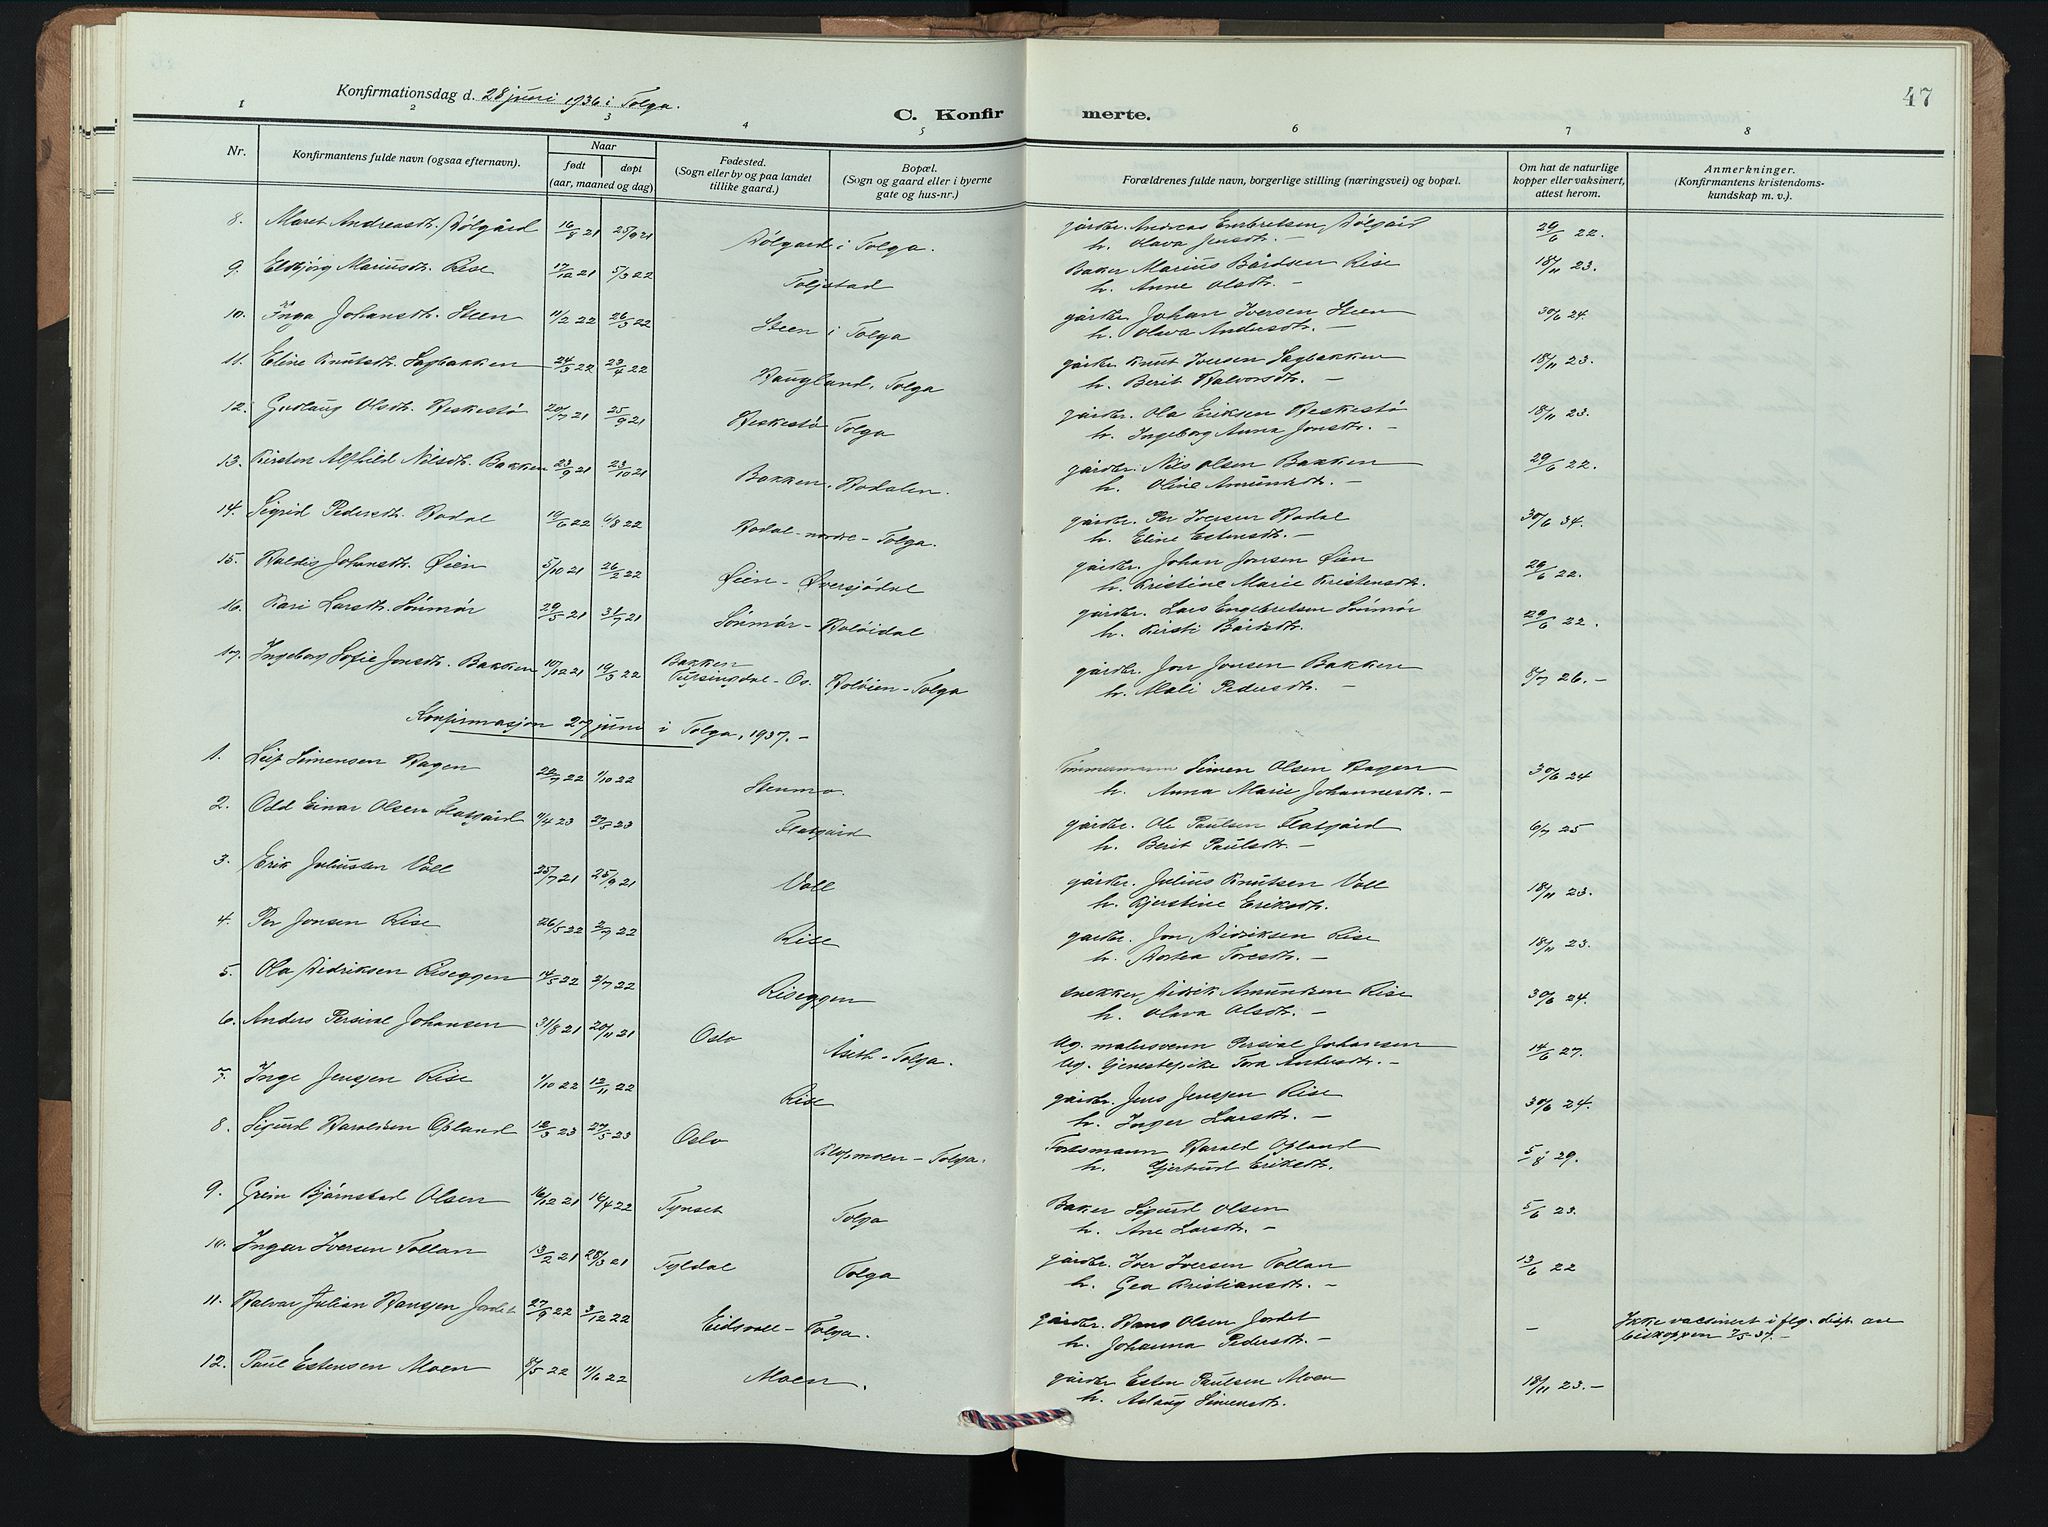 47
Konfirmationsdag d. 28 juni 1936 i Tolga.
C. Konfir merte.
1 2 3 4 5 6 7 8
Nr.
Konfirmantens fulde navn (ogsaa efternavn).
Naar
født døpt
(aar, maaned og dag)
Fødested.
(Sogn eller by og paa landet
tillike gaard.)
Bopæl.
(Sogn og gaard eller i byerne
gate og hus-nr.)
Forældrenes fulde navn, borgerlige stilling (næringsvei) og bopæl.
Om hat de naturlige
kopper eller vaksinert,
attest herom.
Anmerkninger.
(Konfirmantens kristendoms-
kundskap m. v.).
8. Maret Andreasdt. Dølgård 16/8 21 25/9 21 Dølgard i Tolga. gårdbr. Andreas Embretsen Dølgård 29/6 22.
h. Olava Jensdt. —
9. Eldbjørg Mariusdt. Rise 17/12 21 5/3 22 Toljstad Baker Marius Bårdsen Rise 18/11 23.
h. Anne Olsdt. —
10. Inga Johansdt. Steen 11/2 22 26/3 22 Steen i Tolga gårdbr. Johan Iversen Steen 30/6 24.
h. Olava Andersdt. —
11. Eline Knutsdt. Sagbakken 24/3 22 23/4 22 Haugland, Tolga gårdbr. Knut Iversen Sagbakken 18/11 23.
h. Berit Halvorsdt. —
12. Gudlaug Olsdt. Heskestø 20/7 21 25/9 21 Heskestø Tolga gårdbr. Ola Eriksen Heskestø 18/11 23.
h. Ingeborg Anna Jonsdt. —
13. Kirsten Alfhild Nilsdt. Bakken 23/9 21 23/10 21 Bakken, Hodalen. gårdbr. Nils Olsen Bakken 29/6 22.
h. Oline Amundsdt. —
14. Sigrid Pedersdt. Hodal 19/6 22 6/8 22 Hodal-nordre-Tolga. gårdbr. Per Iversen Hodal 30/6 34.
h. Eline Estensdt. —
15. Haldis Johansdt. Øien 5/10 21 26/2 22 Øien-Øversjødal gårdbr. Johan Jonsen Øien 29/6 22.
h. Kristine Marie Kristensdt.
16. Kari Larsdt. Sønmør 29/5 21 31/7 21 Sønmør-Holøidal gårdbr. Lars Engebretsen Sønmør 29/6 22.
h. Kirsti Bårdsdt.
17. Ingeborg Sofie Jonsdt. Bakken 10/12 21 19/3 22 Bakken
Tufsingdal-Os. Holøien-Tolga gårdbr. Jon Jonsen Bakken 8/7 26.—
h. Mali Pedersdt. —
Konfirmasjon 27 juni i Tolga, 1937.—
1. Leif Simensen Hagen 22/7 22 1/10 22 Stenmo Tømmermann Simen Olsen Hagen 30/6 24
h. Anna Marie Johannesdt. —
2. Odd Einar Olsen Flatgård 11/4 23 27/5 23 Flatgård gårdbr. Ole Paulsen Flatgård 6/7 25
h. Berit Paulsdt. —
3. Erik Juliussen Voll 25/7 21 25/9 21 Voll gårdbr. Julius Knutsen Voll 18/11 23.
h. Kjerstine Eriksdt.
4. Per Jonsen Rise 26/5 22 2/7 22 Rise gardbr. Jon Didriksen Rise 18/11 23.
h. Dortea Toresdt. —
5. Ola Didriksen Riseggen 14/5 22 2/7 22 Riseggen snekker Didrik Amundsen Rise 30/6 24.
h. Olava Olsdt. —
6. Anders Persival Johansen 31/8 21 20/11 21 Oslo Åseth-Tolga. Ug. malersvenn Persival Johansen 14/6 27.
Ug. tjenestepike Tora Andersdt. —
7. Inge Jensen Rise 1/10 22 12/11 22 Rise gårdbr. Jens Jensen Rise 30/6 24.
h. Inger Larsdt. —
8. Sigurd Haroldsen Opland 12/3 23 27/5 23 Oslo Klopmoen-Tolga. Forlsmann Harald Opland 5/8 29.
h. Gjertrud Eriksdt.
9. Grim Bjørnstad Olsen 16/12 21 16/4 22 Tynset Tolga Baker Sigurd Olsen 5/6 23.
h. Ane Larsdt. —
10. Ingar Iversen Tollan 13/2 21 28/3 21 Tyldal Tolga gårdbr. Iver Iversen Tollan 13/6 22
h. Gea Kristiansdt. —
11. Halvar Julian Hansen Jordet 27/9 22 3/12 22 Eidsvoll-Tolga. gårdbr. Hans Olsen Jordet — Ikke vaccinert i flg. disp. av
h. Johanna Pedersdt. — biskoppen 7/5 37.—
12. Paul Estensen Moen 8/5 22 11/6 22 Moen. gårdbr Esten Paulsen Moen 18/11 23.—
h. Aslaug Simensdt.